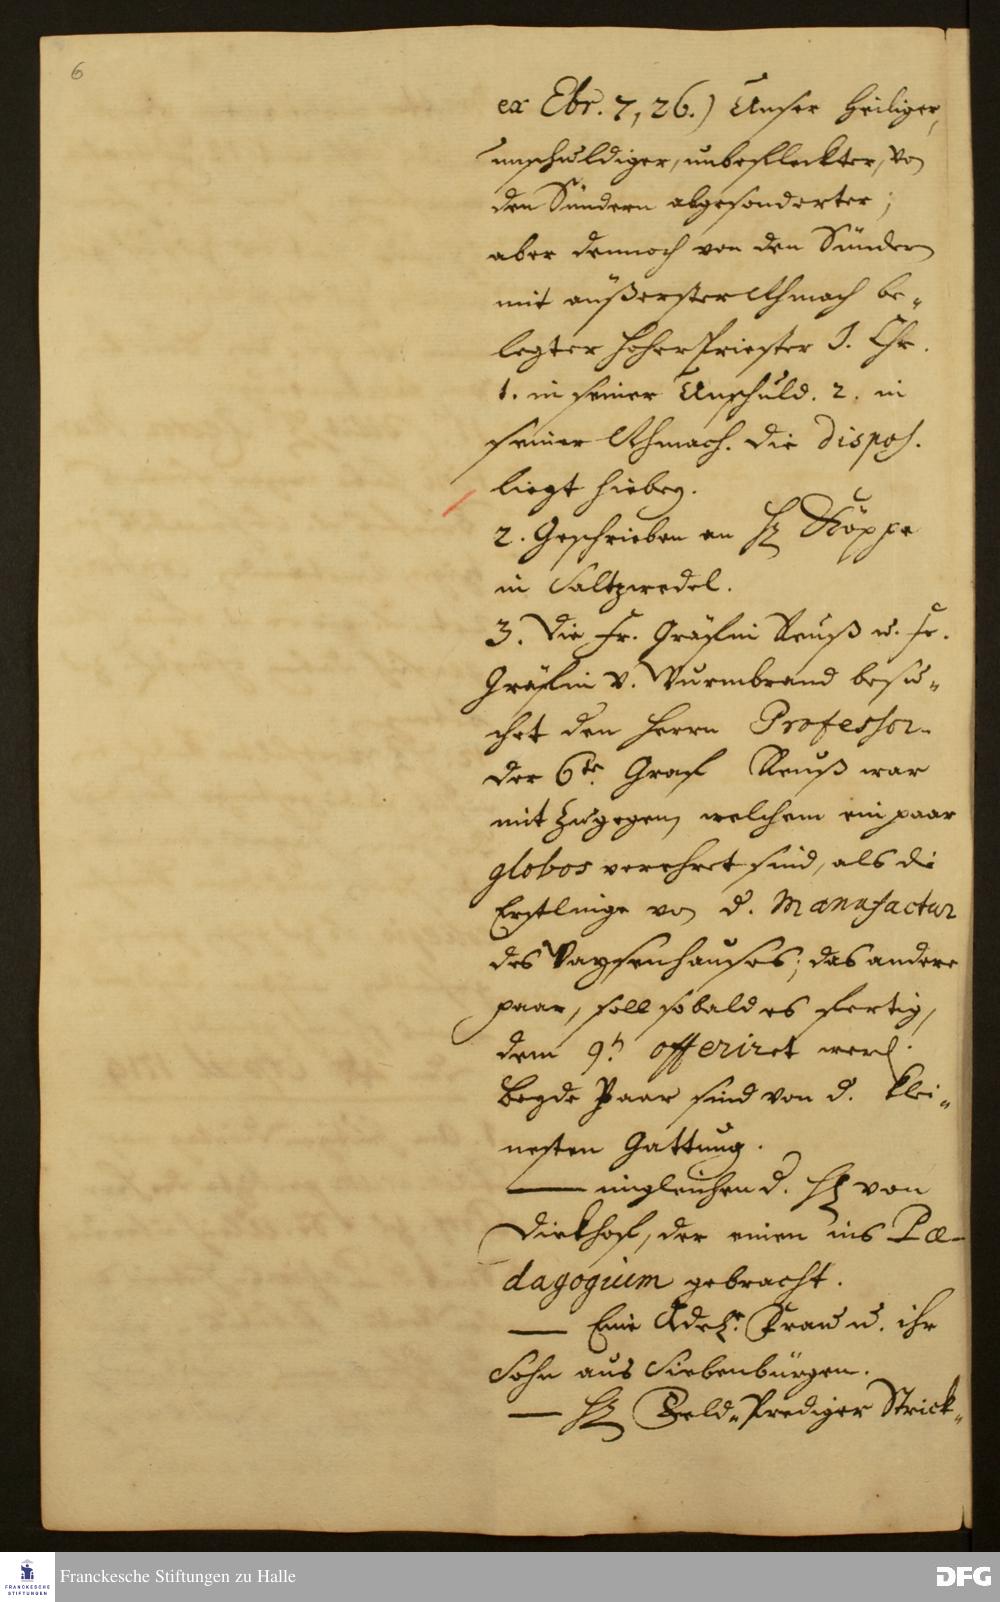 6
ex Ebr. 7, 26.) Unser heiliger,
unschuldiger, unbefleckter, von
den Sündern abgesonderter;
aber dennoch von den Sündern
mit äußerster Schmach be-
legter hoher Priester J. Chr.
1. in seiner Unschuld. 2. in
seiner Schmach. Die dispos.
liegt hiebey.
2. Geschrieben an H. Köppe
in Saltzwedel.
3. Die Fr. Gräfin Reuß u. Fr.
Gräfin v. Wurmbrand besu-
chet den Herrn Professor.
Der 6te Graf Reuß war
mit zugegen, welchem ein paar
globos verehret sind, als die
Erstlinge von d. Manufactur
des Waysenhauses; das andere
paar, soll sobald es fertig,
dem 9ten offeriret werd.
Beyde Paar sind von d. klei-
nesten Gattung.
— imgleichen d. H. von
Dieckhof, der einen ins Pæ-
dagogium gebracht.
— Eine Adel. Frau u. ihr
Sohn aus Siebenbürgen.
— H. Feld-Prediger Strick-
FRANCKESCHE STIFTUNGEN
Franckesche Stiftungen zu Halle
DFG